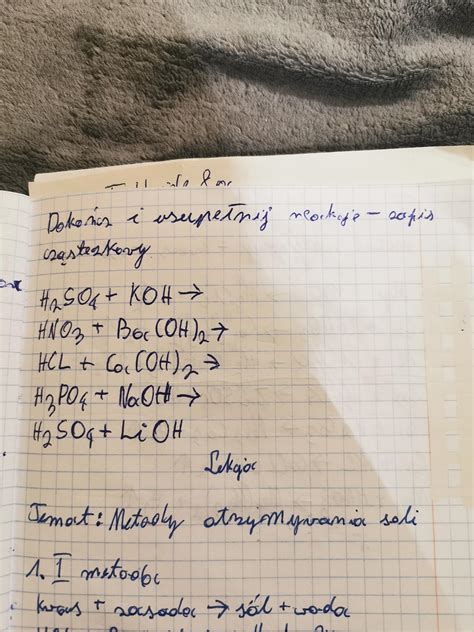 Dokończ i uzupełnij reakcje – zapis
cząsteczkowy
H₂SO₄ + KOH →
HNO₃ + Ba(OH)₂ →
HCL + Ca(OH)₂ →
H₃PO₄ + NaOH →
H₂SO₄ + LiOH
Lekcja
Temat: Metody otrzymywania soli
1. I metoda
kwas + zasada → sól + woda